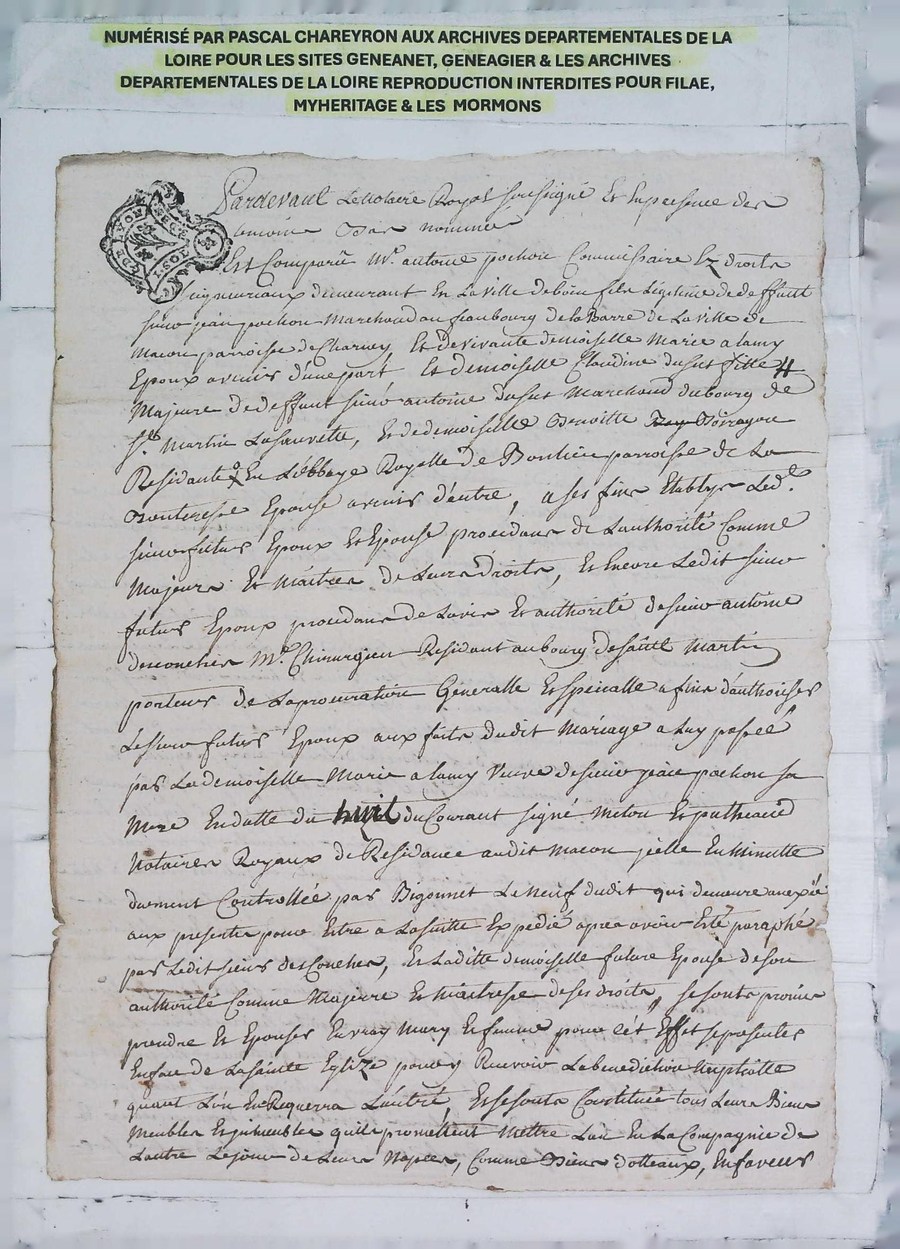 NUMÉRISÉ PAR PASCAL CHAREYRON AUX ARCHIVES DEPARTEMENTALES DE LA
LOIRE POUR LES SITES GENEANET, GENEAGIER & LES ARCHIVES
DEPARTEMENTALES DE LA LOIRE REPRODUCTION INTERDITES POUR FILAE,
MYHERITAGE & LES MORMONS
Pardevant Le Notaire Royal soussigné Et En presence des
temoins Bas nommés
Est Comparü Mr. antoine pochon Commissaire Ez droits
seigneuriaux demeurant En La ville de boën fils Legitime de deffunt
sieur jean pochon Marchand au feaubourg de la Barre de La ville de
Macon parroisse de Charney Et de vivante demoiselle Marie alamy
Epoux avenir d'une part Et demoiselle Claudine dusut fille
Majeure de deffunt sieur antoine dusut Marchand du bourg de
St. Martin La sauvette, Et de demoiselle Benoitte
Residante En L'abbaye Royalle de Bonlieu parroisse de La
Bouteresse Epouse avenir d'autre, a ses fins Etablys Led.
sieur futur Epoux Et Epouse procedans de L'authorité Comme
Majeurs Et Maitres de Leurs droits, Et Encore Ledit sieur
futur Epoux procedans de L'avis Et authorité de sieur antoine
descouches Me. Chirurgien Residant au bourg de saint Martin
porteur de La procuration Generalle Et specialle a fins d'authoriser
Le sieur futur Epoux aux faits dudit Mariage a Luy passée
par La demoiselle Marie alamy veuve de sieur jean pochon sa
Mere En datte du huit du Courant signé Et
Notaires Royaux de Residance audit Macon jcelle En Minutte
duement Controllée par Bigonnet Le Neuf dudit qui demeure anexée
aux presentes pour Etre a La suitte Expedié apres avoir Esté paraphé
par Ledit sieur descouches, Et Laditte demoiselle future Epouse de son
authorité Comme Majeure Et Maitresse de ses droits, se sonts promis
prendre Et Epouser En vray Mary Et femme pour cét Effet se presenter
En face de La sainte Eglize pour y Recevoir La benediction Nuptialle
quant L'un En Requerra L'autre, Et se sonts Constitués tous Leurs Biens
Meubles Et jmeubles qu'ils promettent Mettre L'un En La Compagnie de
L'autre Le jour de Leurs Nopces, Comme Biens dotteaux, En faveur